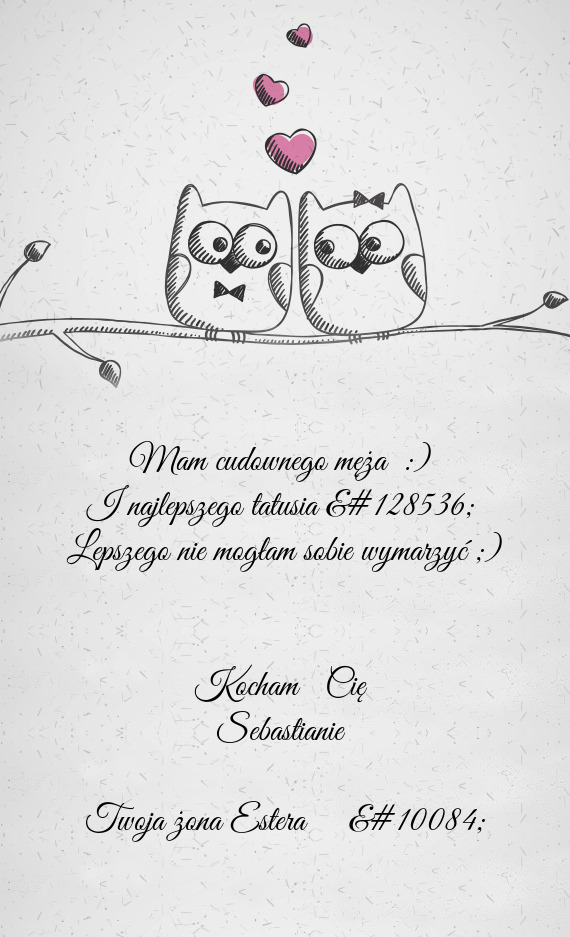 Mam cudownego męża :)
I najlepszego tatusia &#128536;
Lepszego nie mogłam sobie wymarzyć ;)
Kocham Cię
Sebastianie
Twoja żona Estera &#10084;